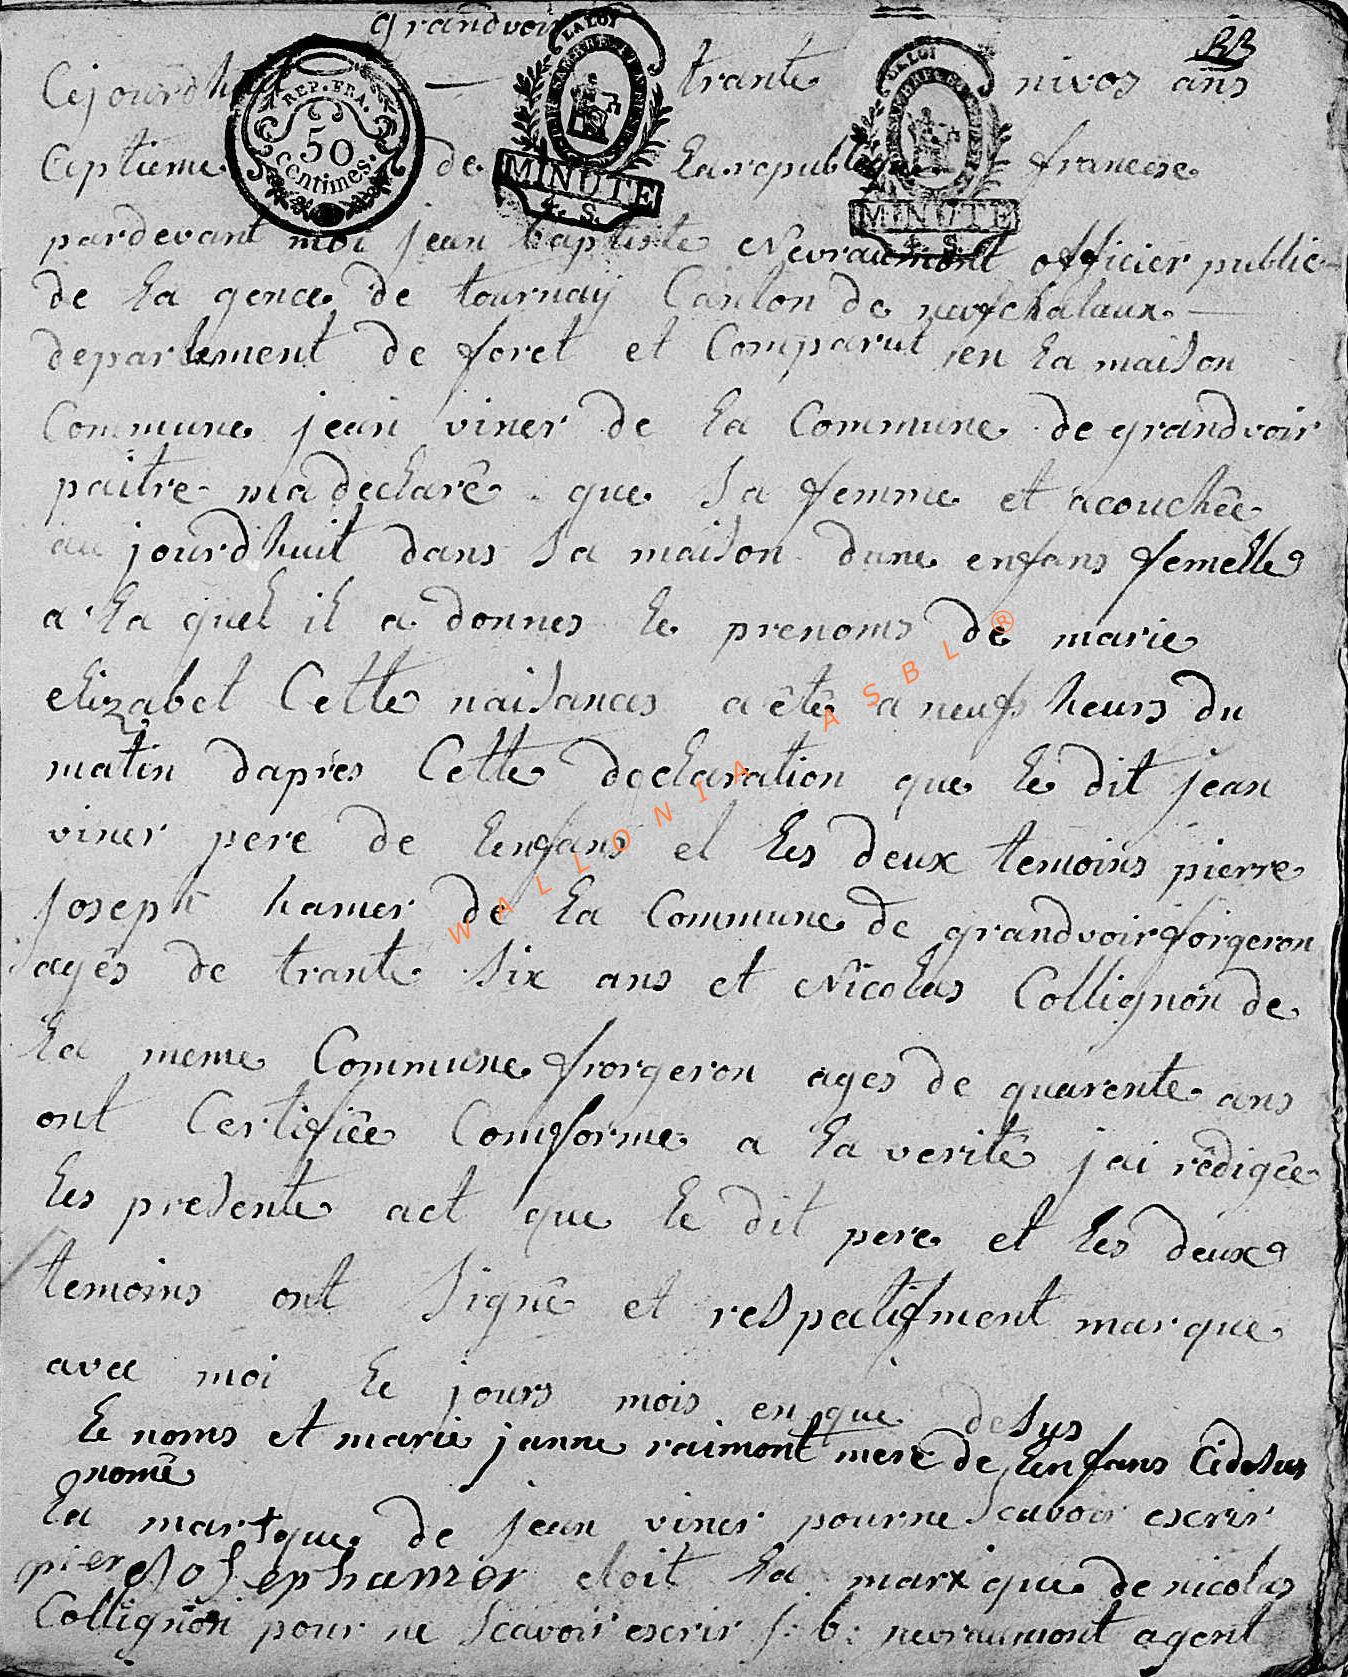 grandvoir
RB
Cejourdhui — trante nivos ans
Ceptieme de La republique francese
REP. FRA.
50
Centimes.
LA LOI
MINUTE
4. S.
LA LOI
MINUTE
4. S.
pardevant moi jean baptiste Nevraumont officier public
de La gence de tournay Canton de neufchataux —
departement de foret et Comparut en La maison
Commune jean viner de La Commune de grandvoir
paitre ma declarê que sa femme et acouchêe
au jourdhuit dans sa maison dune enfans femelle
a La quel il a donnes le prenoms de marie
elizabet Cette naisances a êtê a neufs heurs du
matin dapres Cette declaration que le dit jean
viner pere de Lenfans et Les deux temoins pierre
joseph hamer de La Commune de grandvoir forgeron
ages de trante six ans et Nicolas Collignon de
La meme Commune frorgeron ages de quarente ans
ont Certifiêe Comforme a La veritê jai rêdigêe
Les presente act que le dit pere et Les deuxe
temoins ont signê et respectifment marque
avec moi le jours mois en que desus
Le noms et marie janne raimont mere de Lenfans Cidesus
nomê
La mar+que de jean viner pour ne scavoir escrir
pierre Joseph hamer etoit La marxque de nicolas
Collignon pour ne scavoir escrir j: b: nevraumont agent
WALLONIA ASBL ®